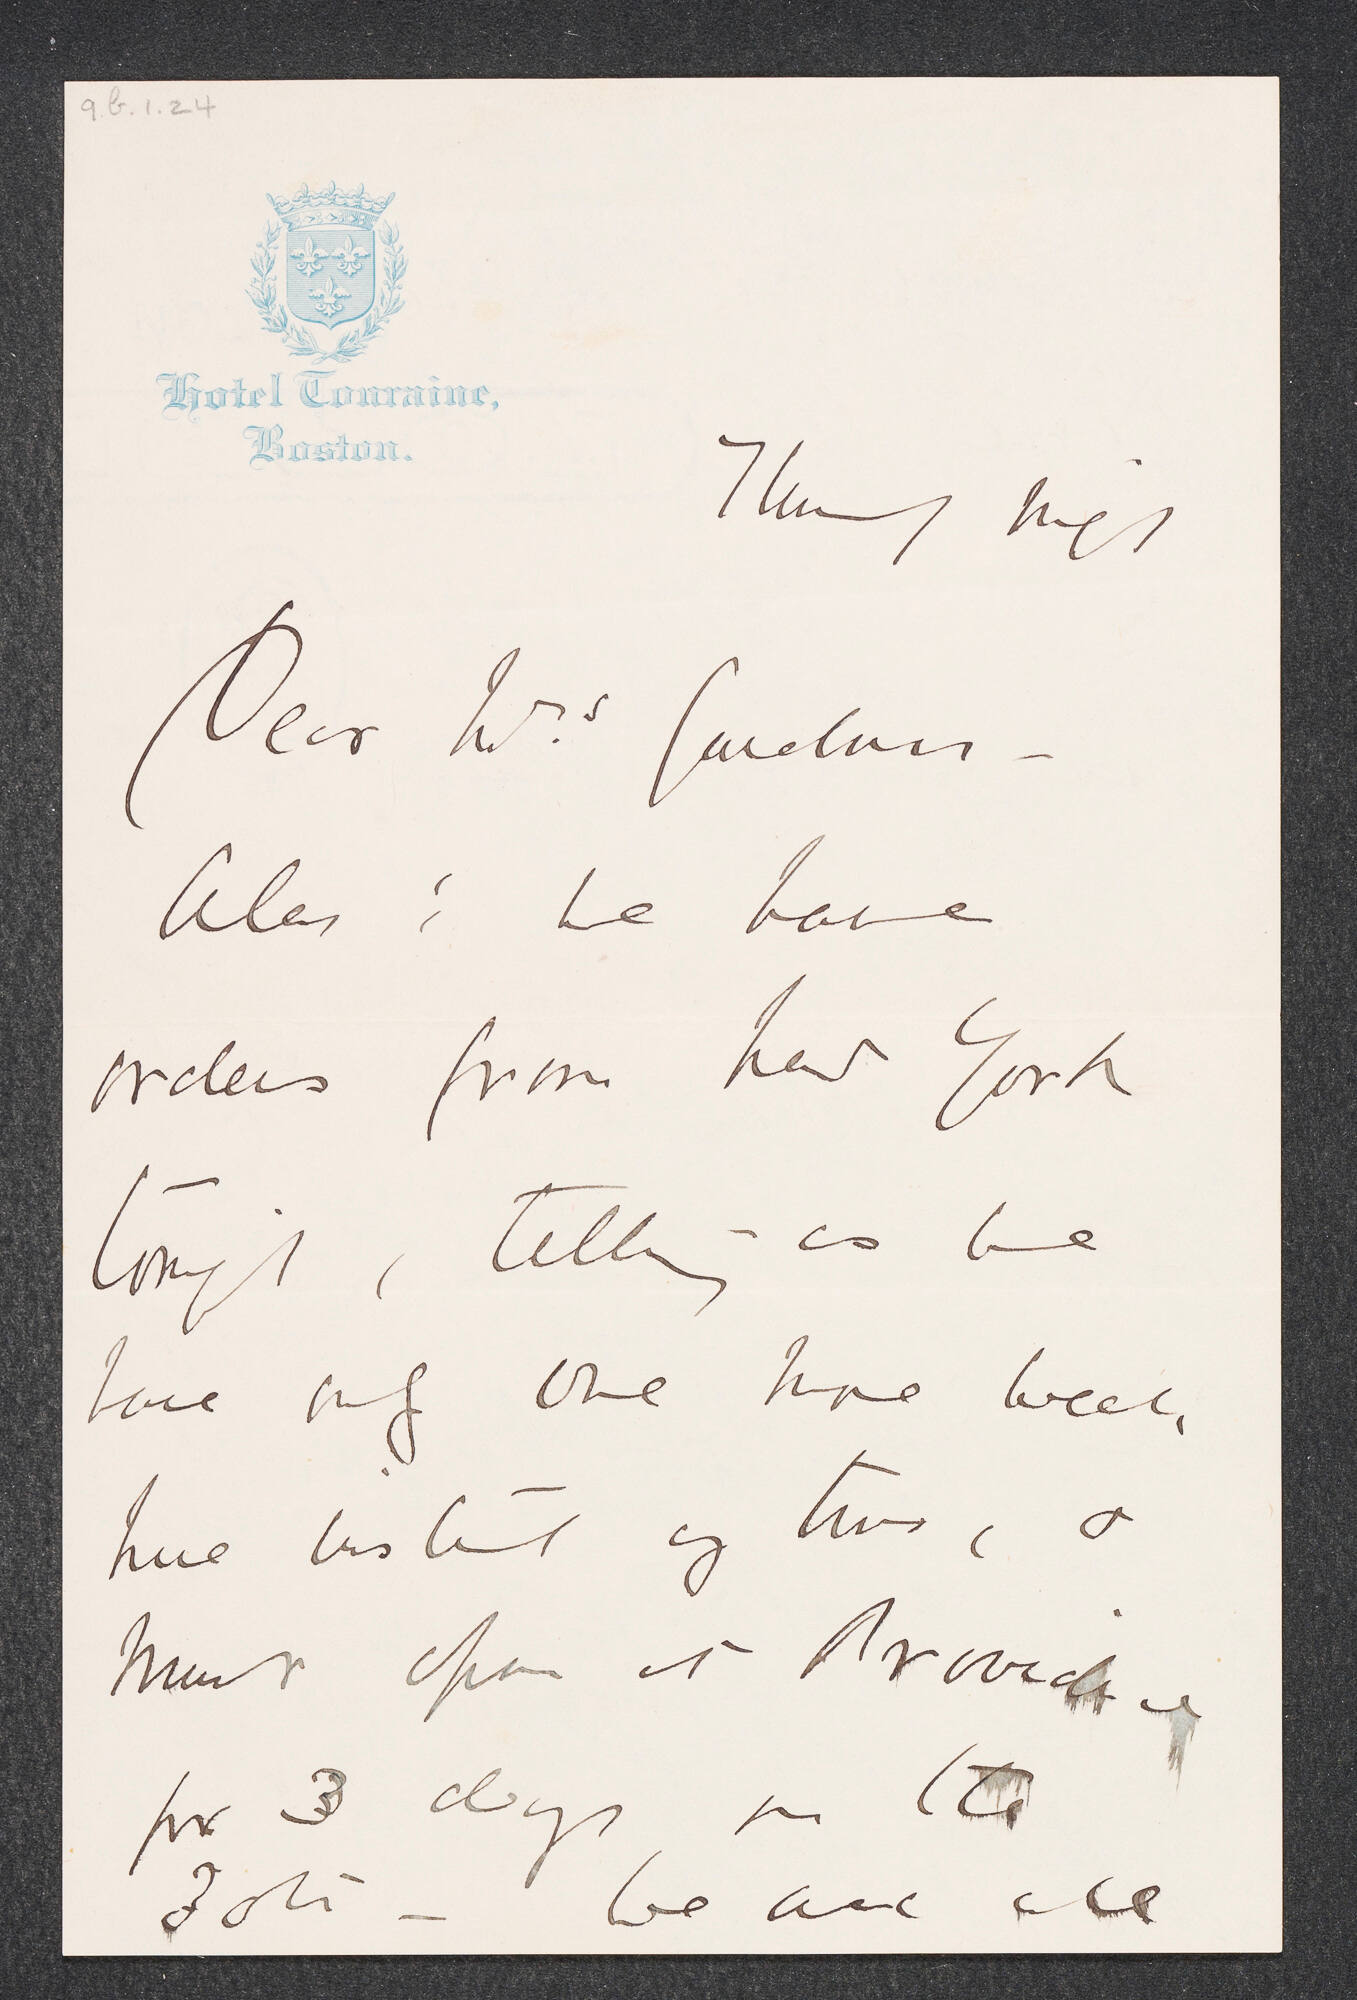 9.b.1.24
Hotel Touraine,
Boston.
Thursday night
Dear Mrs. Gardner –
Alas! we have
orders from New York
tonight, telling us we
have only one more week
here instead of two, &
must open at Providence
for 3 days on the
30th – We are all